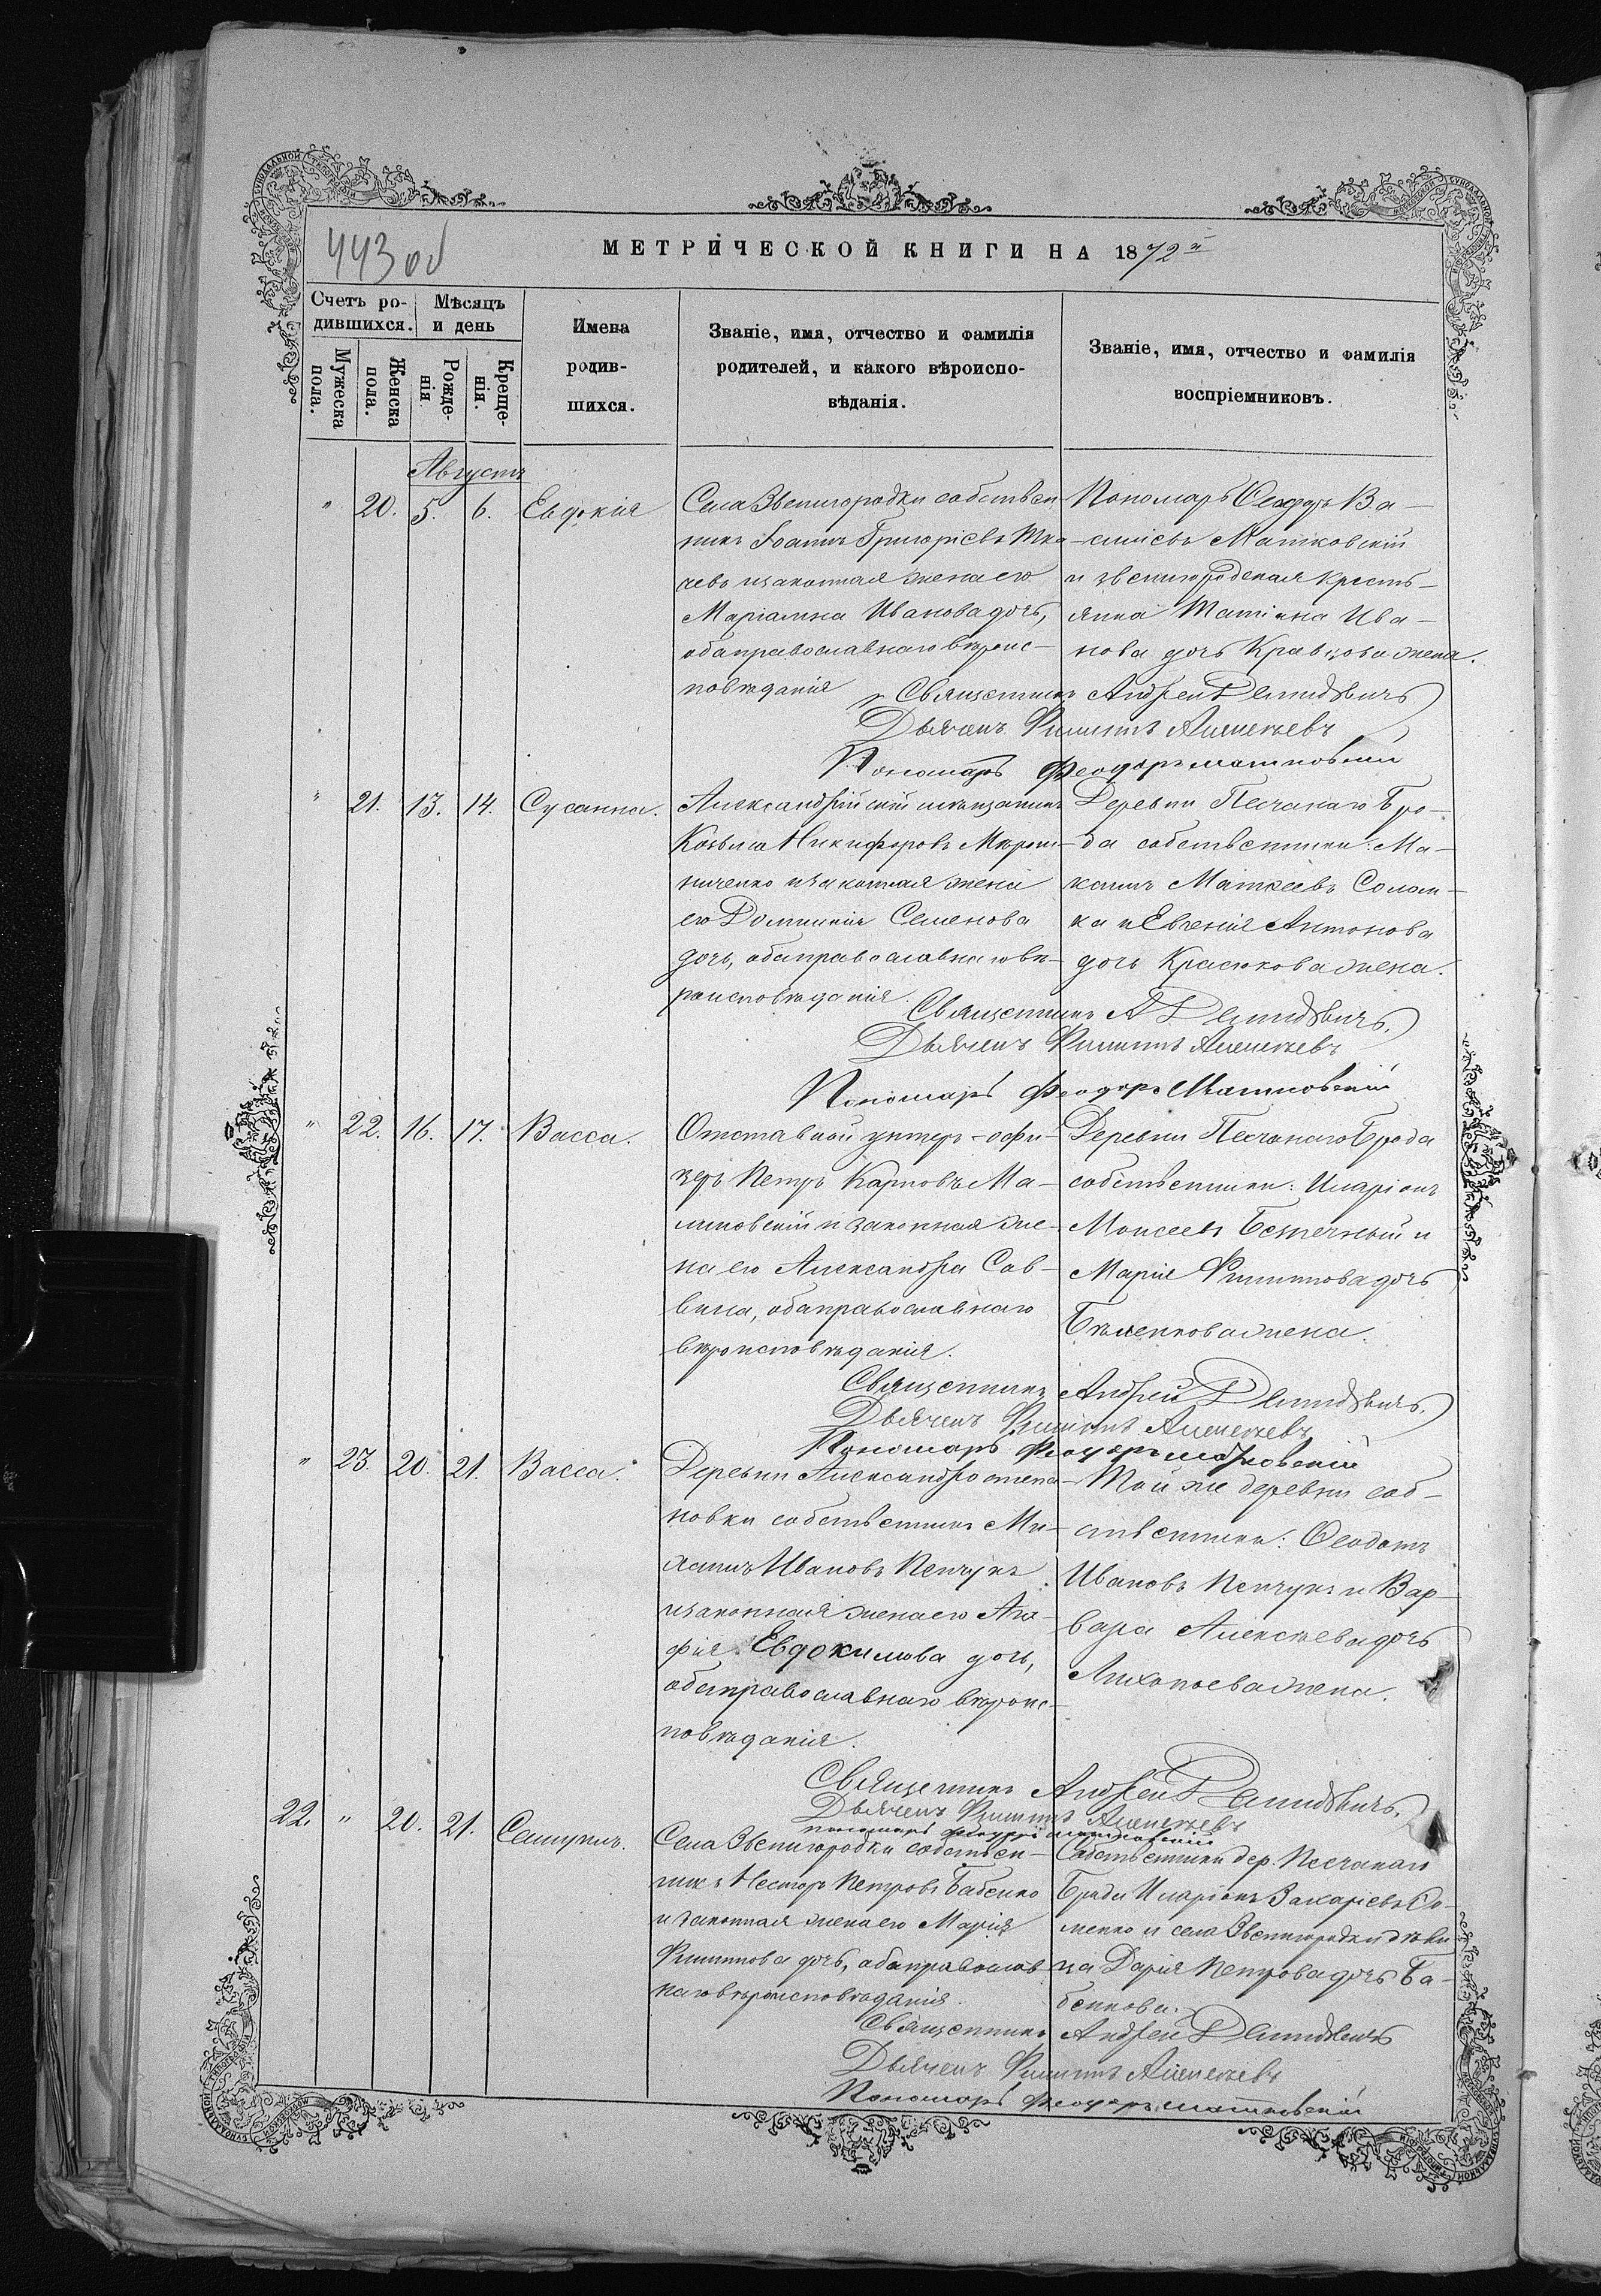 443 об
МЕТРИЧЕСКОЙ КНИГИ НА 1872й
Счетъ ро-
дившихся.
Мѣсяцъ
и день
Мужеска
пола.
Женска
пола.
Рожде-
нія
Креще-
нія.
Имена
родив-
шихся.
Званіе, имя, отчество и фамилія
родителей, и какого вѣроиспо-
вѣданія.
Званіе, имя, отчество и фамилія
воспріемниковъ.
Августъ
" 20. 5. 6. Евдокія
Села Звенигородки собствен-
никъ Іоаннъ Григоріевъ Тка-
чевъ и законная жена его
Маріамна Иванова дочь,
оба православнаго вѣроис-
повѣданія
Пономарь Ѳеодоръ Ва-
силіевъ Матковскій
и звенигородская кресть-
янка Татіана Ива-
нова дочь Кравцова жена.
Священникъ Андрей Демидовичъ
Дьячекъ Филиппъ Алексѣевъ
Пономарь Феодоръ Матковскій
" 21. 13. 14. Сусанна.
Александрійскій мѣщанинъ
Козьма Никифоровъ Мирош-
ниченко и законная жена
его Домникія Семенова
дочь, оба православнаго вѣ-
роисповѣданія.
Деревни Песчанаго Бро-
да собственники: Ма-
Матвеевъ
ка и Евгенія Антонова
дочь Красюкова жена.
Священникъ А Демидовичъ.
Дьячекъ Филиппъ Алексѣевъ
Пономарь Феодоръ Матковскій
" 22. 16. 17. Васса.
Отставной унтеръ-офи-
церъ Петръ Карповъ Ма-
линовскій и законная же-
на его Александра Сав-
вина, оба православнаго
вѣроисповѣданія.
Деревни Песчанаго Брода
собственники: Иларіонъ
Моисеевъ Безпечный и
Марія Филиппова дочь
Бѣленкова жена.
Священникъ Андрей Демидовичъ.
Дьячекъ Филиппъ Алексѣевъ
Пономарь Феодоръ Матковскій
" 23. 20. 21. Васса.
Деревни Александростепа-
новки собственникъ Ми-
Ивановъ Пенчукъ
и законная жена его Ага-
фія Евдокимова дочь,
оба православнаго вѣроис-
повѣданія.
Той же деревни соб-
ственники: Ѳеодотъ
Ивановъ Пенчукъ и Вар-
вара Алексѣева дочь
жена.
Священникъ Андрей Демидовичъ.
Дьячекъ Филиппъ Алексѣевъ
Пономарь Феодоръ Матковскій
22. " 20. 21.
Села Звенигородки собствен-
никъ Несторъ Петровъ Бабенко
и законная жена его Марія
Филиппова дочь, оба православ-
наго вѣроисповѣданія.
Собственники дер. Песчанаго
Брода Иларіонъ Захаріевъ Со-
менко и села Звенигородки дѣви-
ца Дарія Петрова дочь Ба-
бенкова.
Священникъ Андрей Демидовичъ
Дьячекъ Филиппъ Алексѣевъ
Пономарь Феодоръ Матковскій